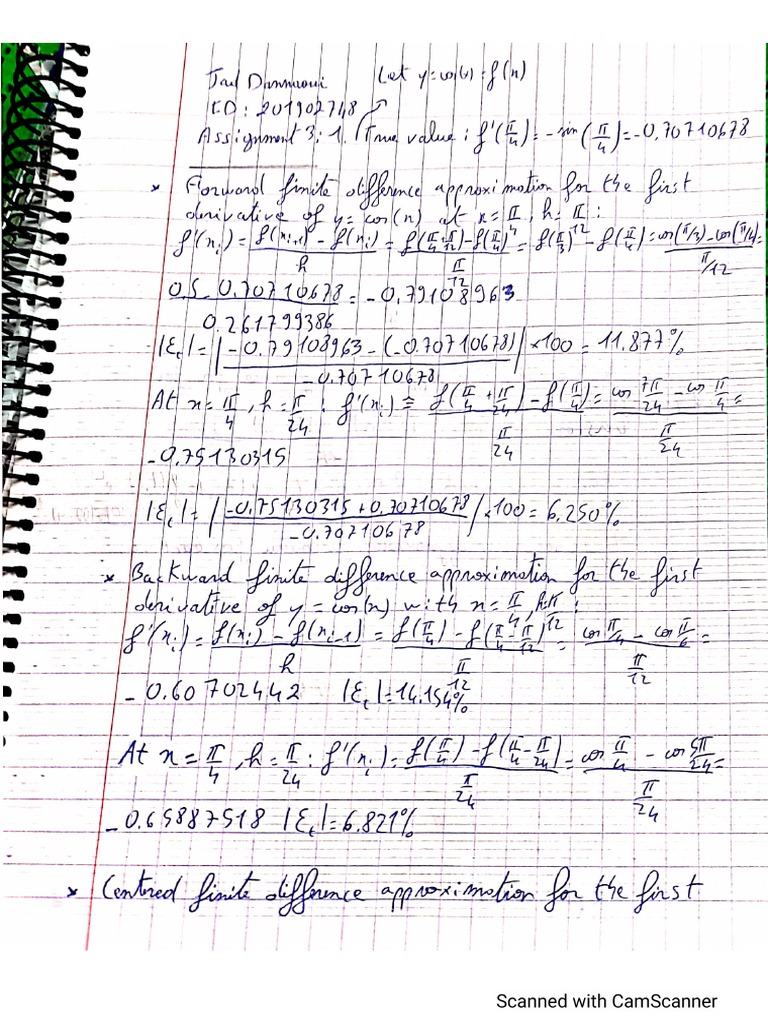 Jad Dannaoui Let y=cos(x)=f(x)
ID: 201902748
Assignment 3: 1. True value: f'(π/4)=-sin(π/4)=-0.70710678
* Forward finite difference approximation for the first
derivative of y=cos(x) at x=π/4, h=π/12:
f'(xi)=(f(xi+1)-f(xi))/h=(f(π/4+π/12)-f(π/4))/(π/12)=f(π/3)-f(π/4)=(cos(π/3)-cos(π/4))/(π/12)=
(0.5-0.70710678)/0.261799386=-0.79108963
|εt|=|(-0.79108963-(-0.70710678))/-0.70710678|×100=11.877%
At x=π/4, h=π/24: f'(xi)≅(f(π/4+π/24)-f(π/4))/(π/24)=(cos 7π/24-cos π/4)/(π/24)=
-0.75130315
|εt|=|(-0.75130315+0.70710678)/-0.70710678|×100=6.250%
* Backward finite difference approximation for the first
derivative of y=cos(x) with x=π/4, h=π/12:
f'(xi)=(f(xi)-f(xi-1))/h=(f(π/4)-f(π/4-π/12))/(π/12)=(cos π/4-cos π/6)/(π/12)=
-0.60702442 |εt|=14.154%
At x=π/4, h=π/24: f'(xi)=(f(π/4)-f(π/4-π/24))/(π/24)=(cos π/4-cos 5π/24)/(π/24)=
-0.65887518 |εt|=6.821%
* Centred finite difference approximation for the first
Scanned with CamScanner